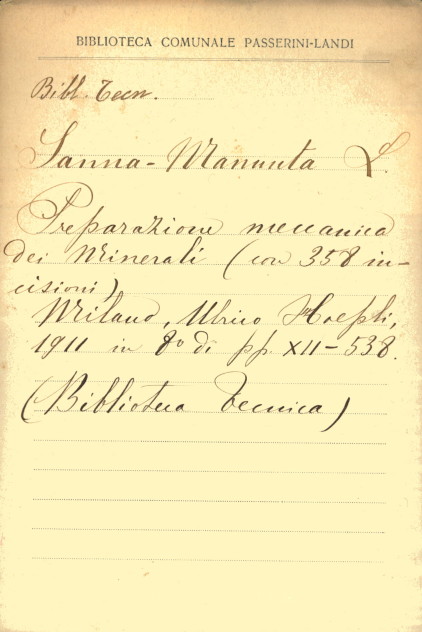 BIBLIOTECA COMUNALE PASSERINI-LANDI
Bibl. Tecn.
Sanna-Manunta L.
Preparazione meccanica
dei Minerali (con 358 in-
cisioni)
Milano, Ulrico Hoepli,
1911 in 8º di pp. XII-538.
(Biblioteca Tecnica)